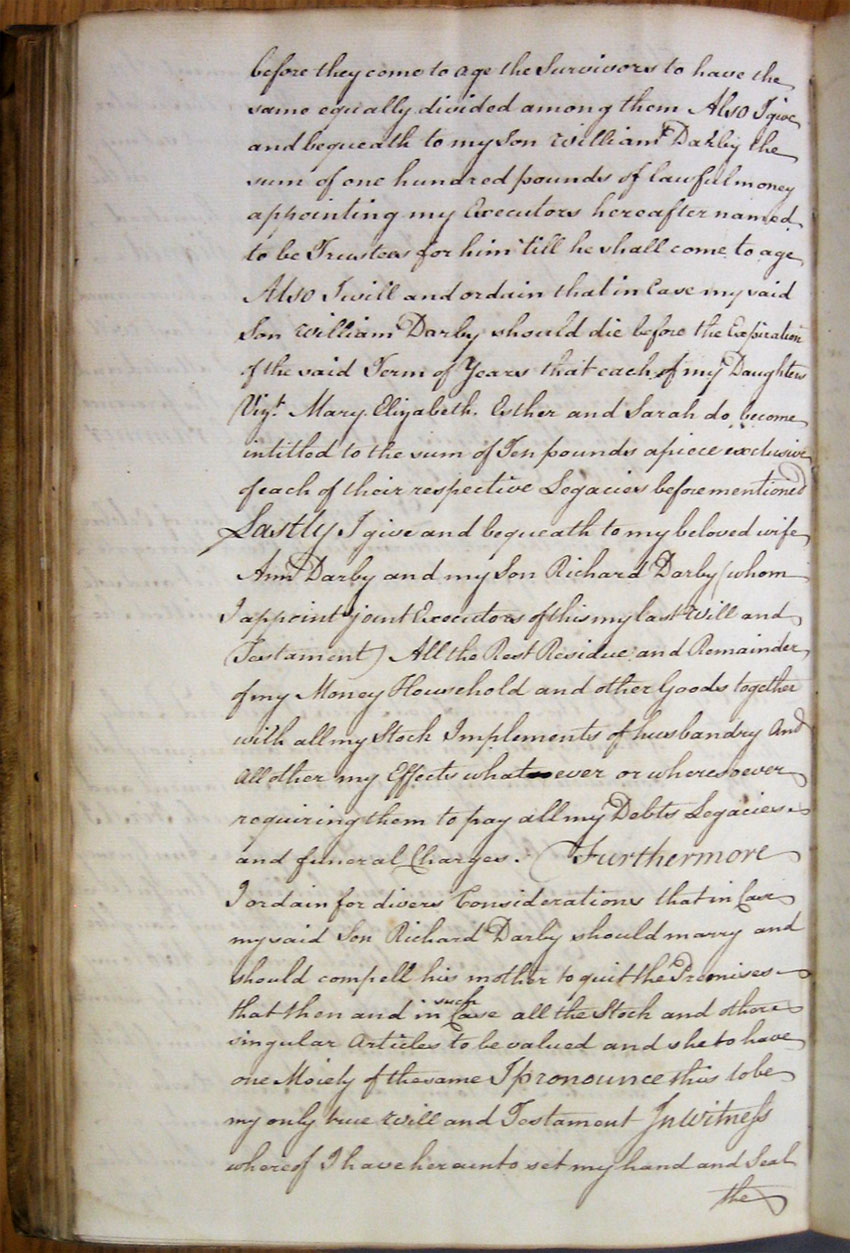 before they come to age the Survivors to have the
same equally divided among them Also I give
and bequeath to my Son William Darby the
sum of one hundred pounds of lawful money
appointing my Executors hereafter named
to be Trustees for him till he shall come to age
Also I will and ordain that in Case my said
Son William Darby should die before the Expiration
of the said Term of Years that each of my Daughters
Vizt. Mary Elizabeth. Esther and Sarah do become
intitled to the sum of Ten pounds apiece exclusive
of each of their respective Legacies beforementioned
Lastly I give and bequeath to my beloved wife
Ann Darby and my Son Richard Darby (whom
I appoint joint Executors of this my last Will and
Testament) All the Rest Residue and Remainder
of my Money Household and other Goods together
with all my Stock Implements of husbandry And
all other my Effects whatever or wheresoever
requiring them to pay all my Debts Legacies
and funeral Charges. Furthermore
I ordain for divers Considerations that in Case
my said Son Richard Darby should marry and
should compell his mother to quit the Premises
that then and in such Case all the Stock and other
singular Articles to be valued and she to have
one Moiety of the same I pronounce this to be
my only true Will and Testament In Witness
whereof I have hereunto set my hand and Seal
the